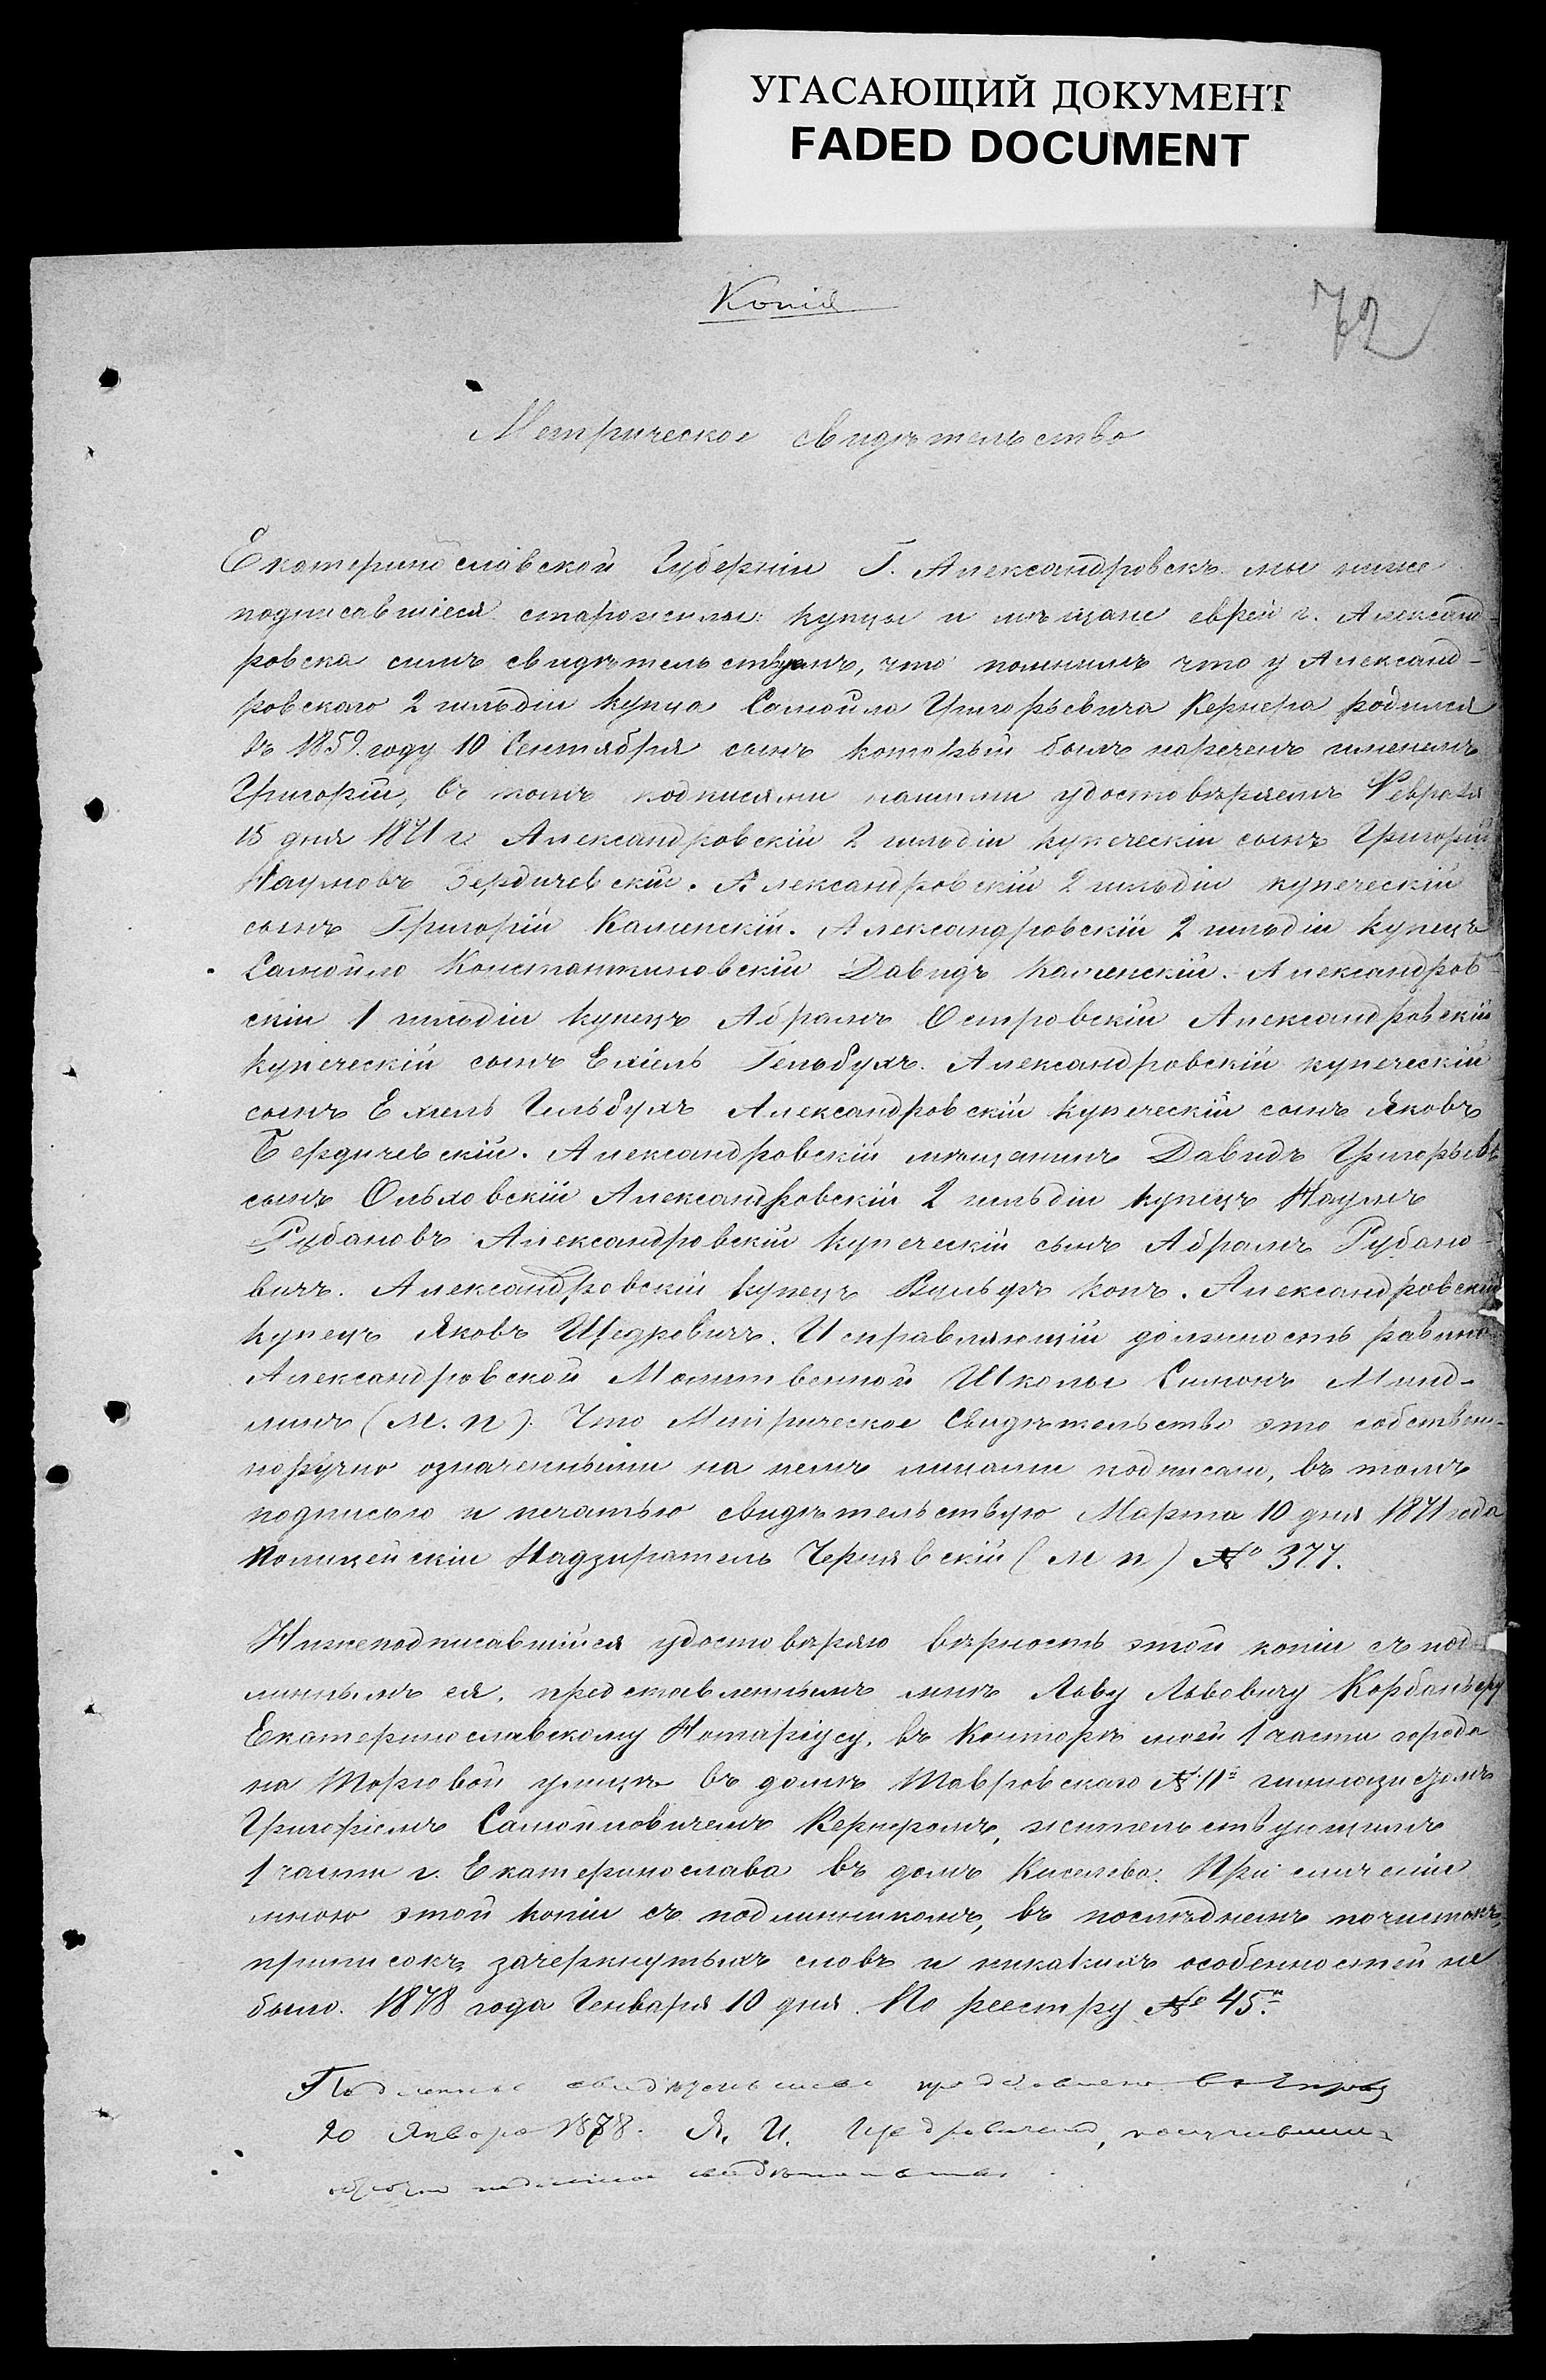 УГАСАЮЩИЙ ДОКУМЕНТ
FADED DOCUMENT
Копія
72
Метрическое свидѣтельство
Екатеринославской Губерніи Г. Александровскъ мы ниже
подписавшіеся старожилы купцы и мѣщане евреи г. Александ-
ровска симъ свидѣтельствуемъ, что помнимъ что у Александ-
ровскаго 2 гильдіи купца Самойла Григорьевича Кернера родился
въ 1859 году 10 Сентября сынъ который былъ нареченъ именемъ
Григорій, въ томъ подписями нашими удостовѣряемъ Февраля
15 дня 1871 г. Александровскій 2 гильдіи купеческій сынъ Григорій
Наумовъ Бердичевскій. Александровскій 2 гильдіи купеческій
сынъ Григорій Каменскій. Александровскій 2 гильдіи купецъ
Самойло Константиновскій Давидъ Каменскій. Александров-
скій 1 гильдіи купецъ Абрамъ Островскій Александровскій
купеческій сынъ Ехіель Гельбухъ. Александровскій купеческій
сынъ Ехіель Гельбухъ Александровскій купеческій сынъ Яковъ
Бердичевскій. Александровскій мѣщанинъ Давидъ Григорьевъ
сынъ Ольховскій Александровскій 2 гильдіи купецъ Наумъ
Рубановъ Александровскій купеческій сынъ Абрамъ Рубано-
вичъ. Александровскій купецъ Вульфъ Копъ. Александровскій
купецъ Яковъ Щедровичъ. Исправляющій должность равина
Александровской Молитвенной Школы Симонъ Минд-
линъ (М. п). Что Метрическое Свидѣтельство это собствен-
норучно означенными на немъ лицами подписано, въ томъ
подписью и печатью свидѣтельствую Марта 10 дня 1871 года
Полицейскій Надзиратель Чернявскій (М п) № 377.
Нижеподписавшійся удостовѣряю вѣрность этой копіи съ под-
линнымъ ея, представленнымъ мнѣ Льву Львовичу Корбаньеру
Екатеринославскому Нотаріусу, въ Конторѣ моей 1 части города
на Торговой улицѣ въ домѣ Тавровскаго № 11й гимназистомъ
Григоріемъ Самойловичемъ Кернеромъ, жительствующимъ
1 части г. Екатеринослава въ домѣ Киселева. При сличеніи
мною этой копіи съ подлинникомъ, въ послѣднемъ почистокъ,
приписокъ, зачеркнутыхъ словъ и никакихъ особенностей не
было. 1878 года Генваря 10 дня. По реестру № 45.
Подлинное свидѣтельство
20 Января 1878. Я. И. Щедровичемъ, получившимъ
обратно подлинное свидѣтельство.